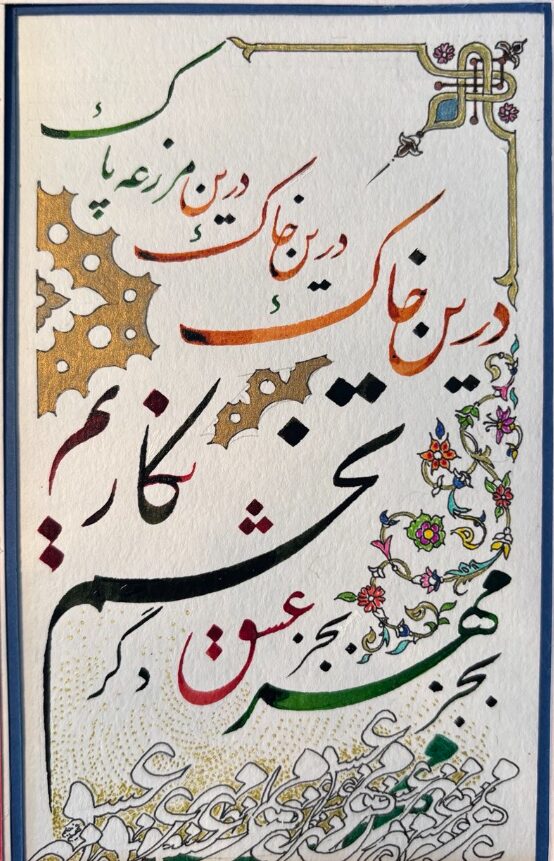 درین خاک
درین خاک
درین مزرعه پاک
بجز مهر
بجز عشق
دگر تخم نکاریم